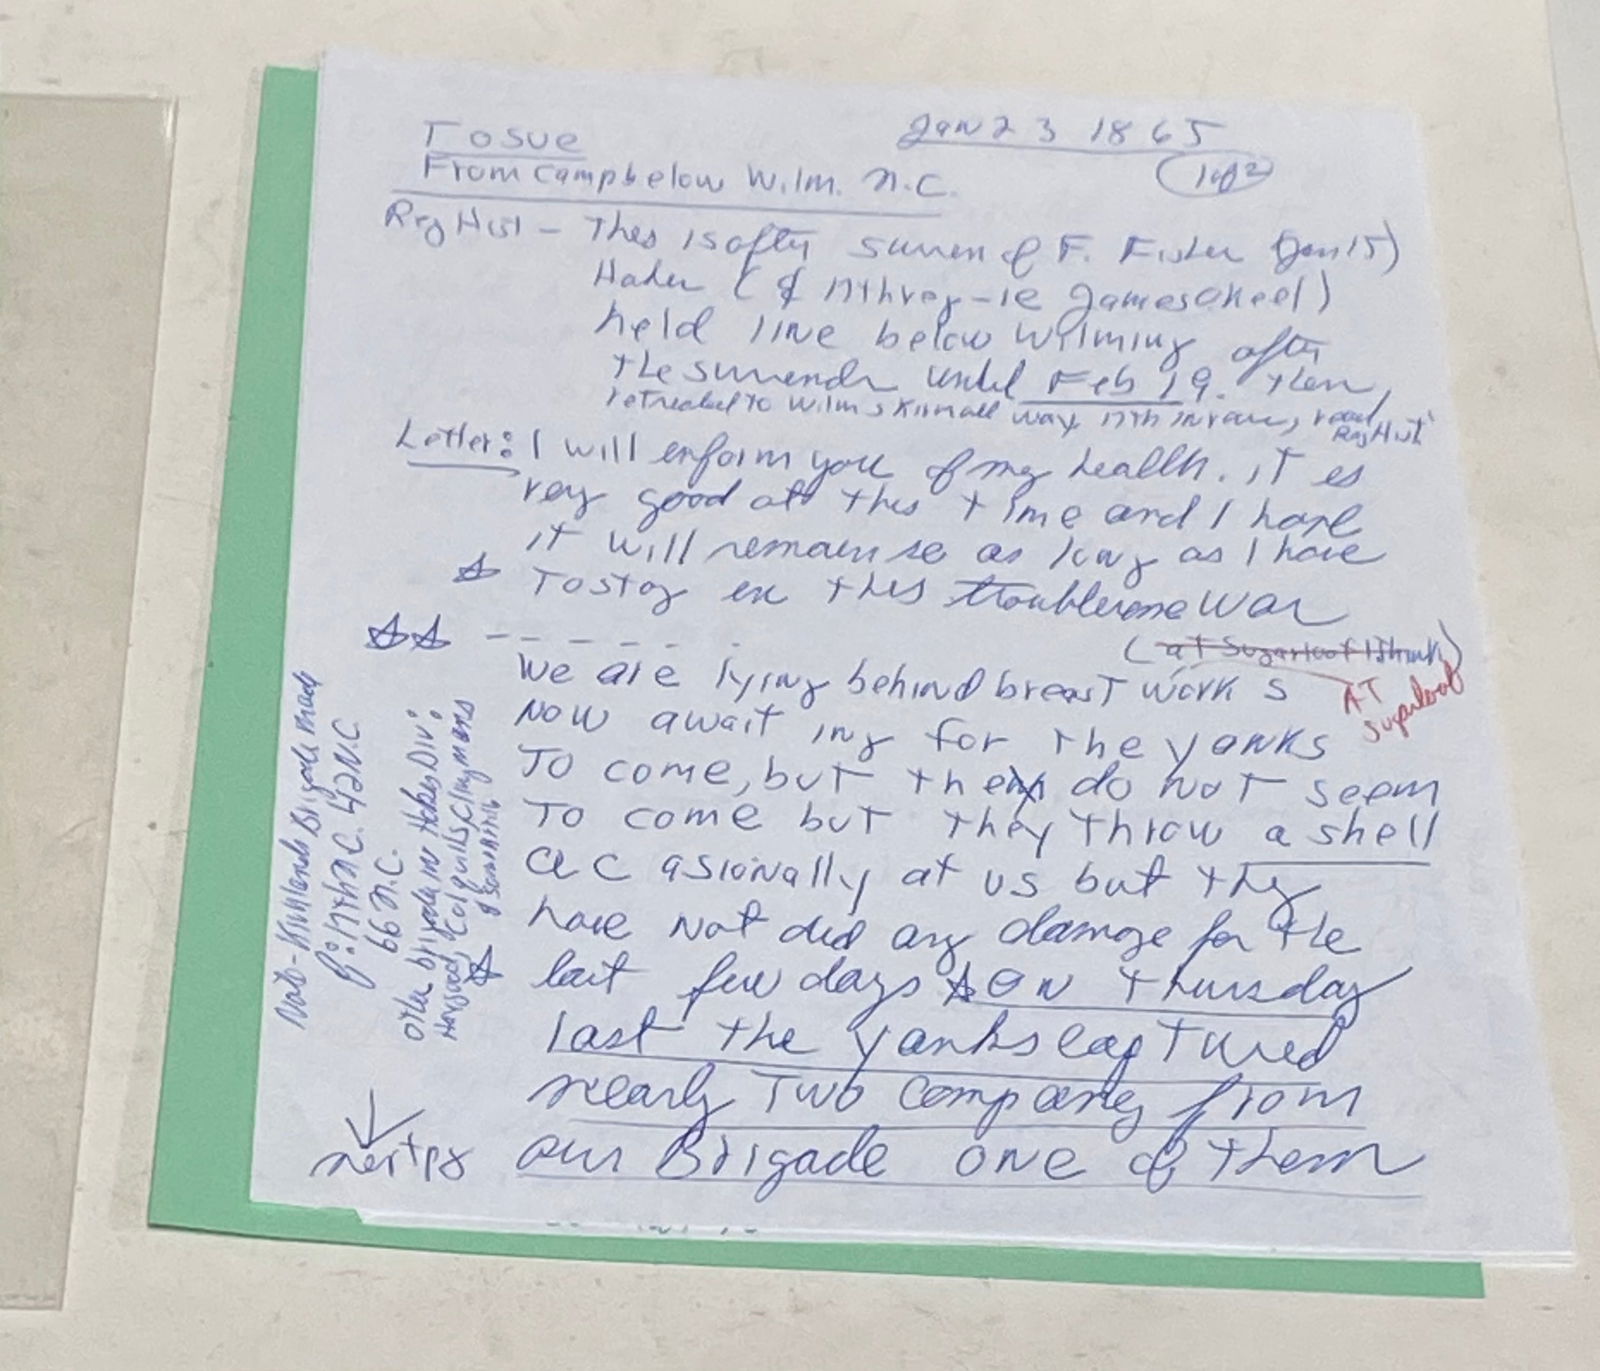 To Sue
Jan 23 1865
From Camp below Wilm. N.C.
1 of 2
Reg Hist - This is after surren of F. Fisher (Jan 15)
(& 17th reg - ie James
held line below Wilming after
the surrendr until Feb 19. then,
retreated to Wilm & 17th in rear, read
Reg Hist
Letter: I will enform you of my health. it es
very good att this time and I hope
it will remain so as long as I have
To stay en this troublesome war
(at Sugarloaf
We are lying behind breast works
AT
Sugarloaf
Now await ing for the yanks
To come, but they do not seem
To come but they throw a shell
ac asionally at us but they
have not did any damage for the
last few days on Thursday
last the yanks captured
nearly Two company from
our Brigade one of them
next pg
Note - Kirklands Brigade made
17th N.C. 42 N.C.
66 N.C.
other brigades in Hokes Div:
Hagood, Colquitts, Clingmans